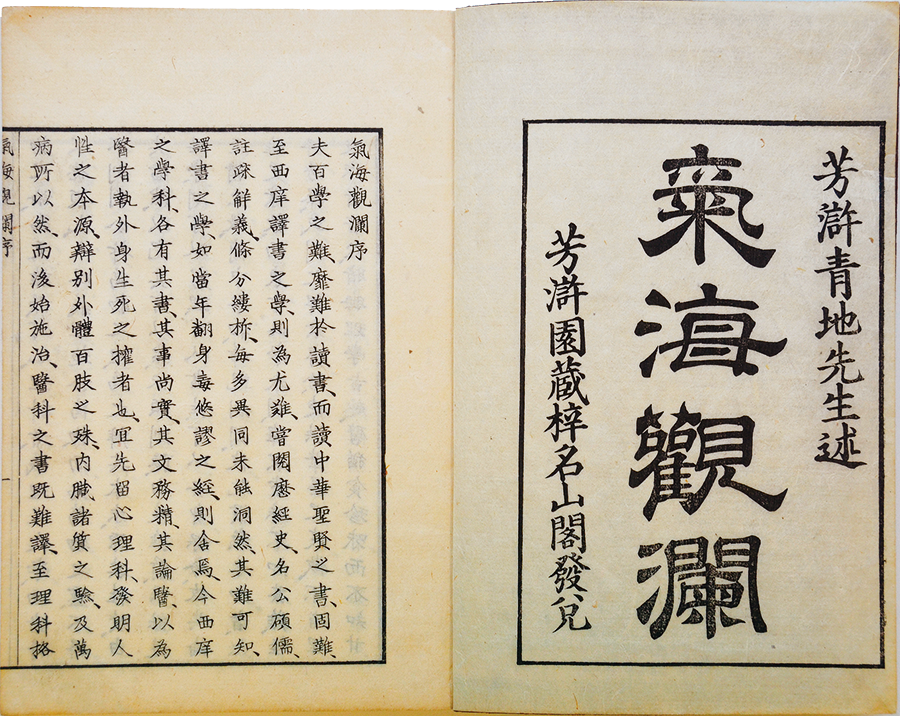 芳滸青地先生述
氣海觀瀾
芳滸園藏梓名山閣發兌
氣海觀瀾序
夫百學之難靡難於讀書、而讀中華聖賢之書固難、
至西庠譯書之學、則為尤難、嘗閱歷經史、名公碩儒、
註疎解義、條分縷析、每多異同、未能洞然、其難可知、
譯書之學、如當年翻身毒悠謬之經、則舍焉、今西庠
之學科、各有其書、其事尚實、其文務精、其論醫、以為
醫者執外身生死之權者也、宜先留心理科、發明人
性之本源、辯别外體百肢之殊、内臟諸質之驗、及萬
病所以然、而後始施治、醫科之書既難譯、至理科格
氣海觀瀾序